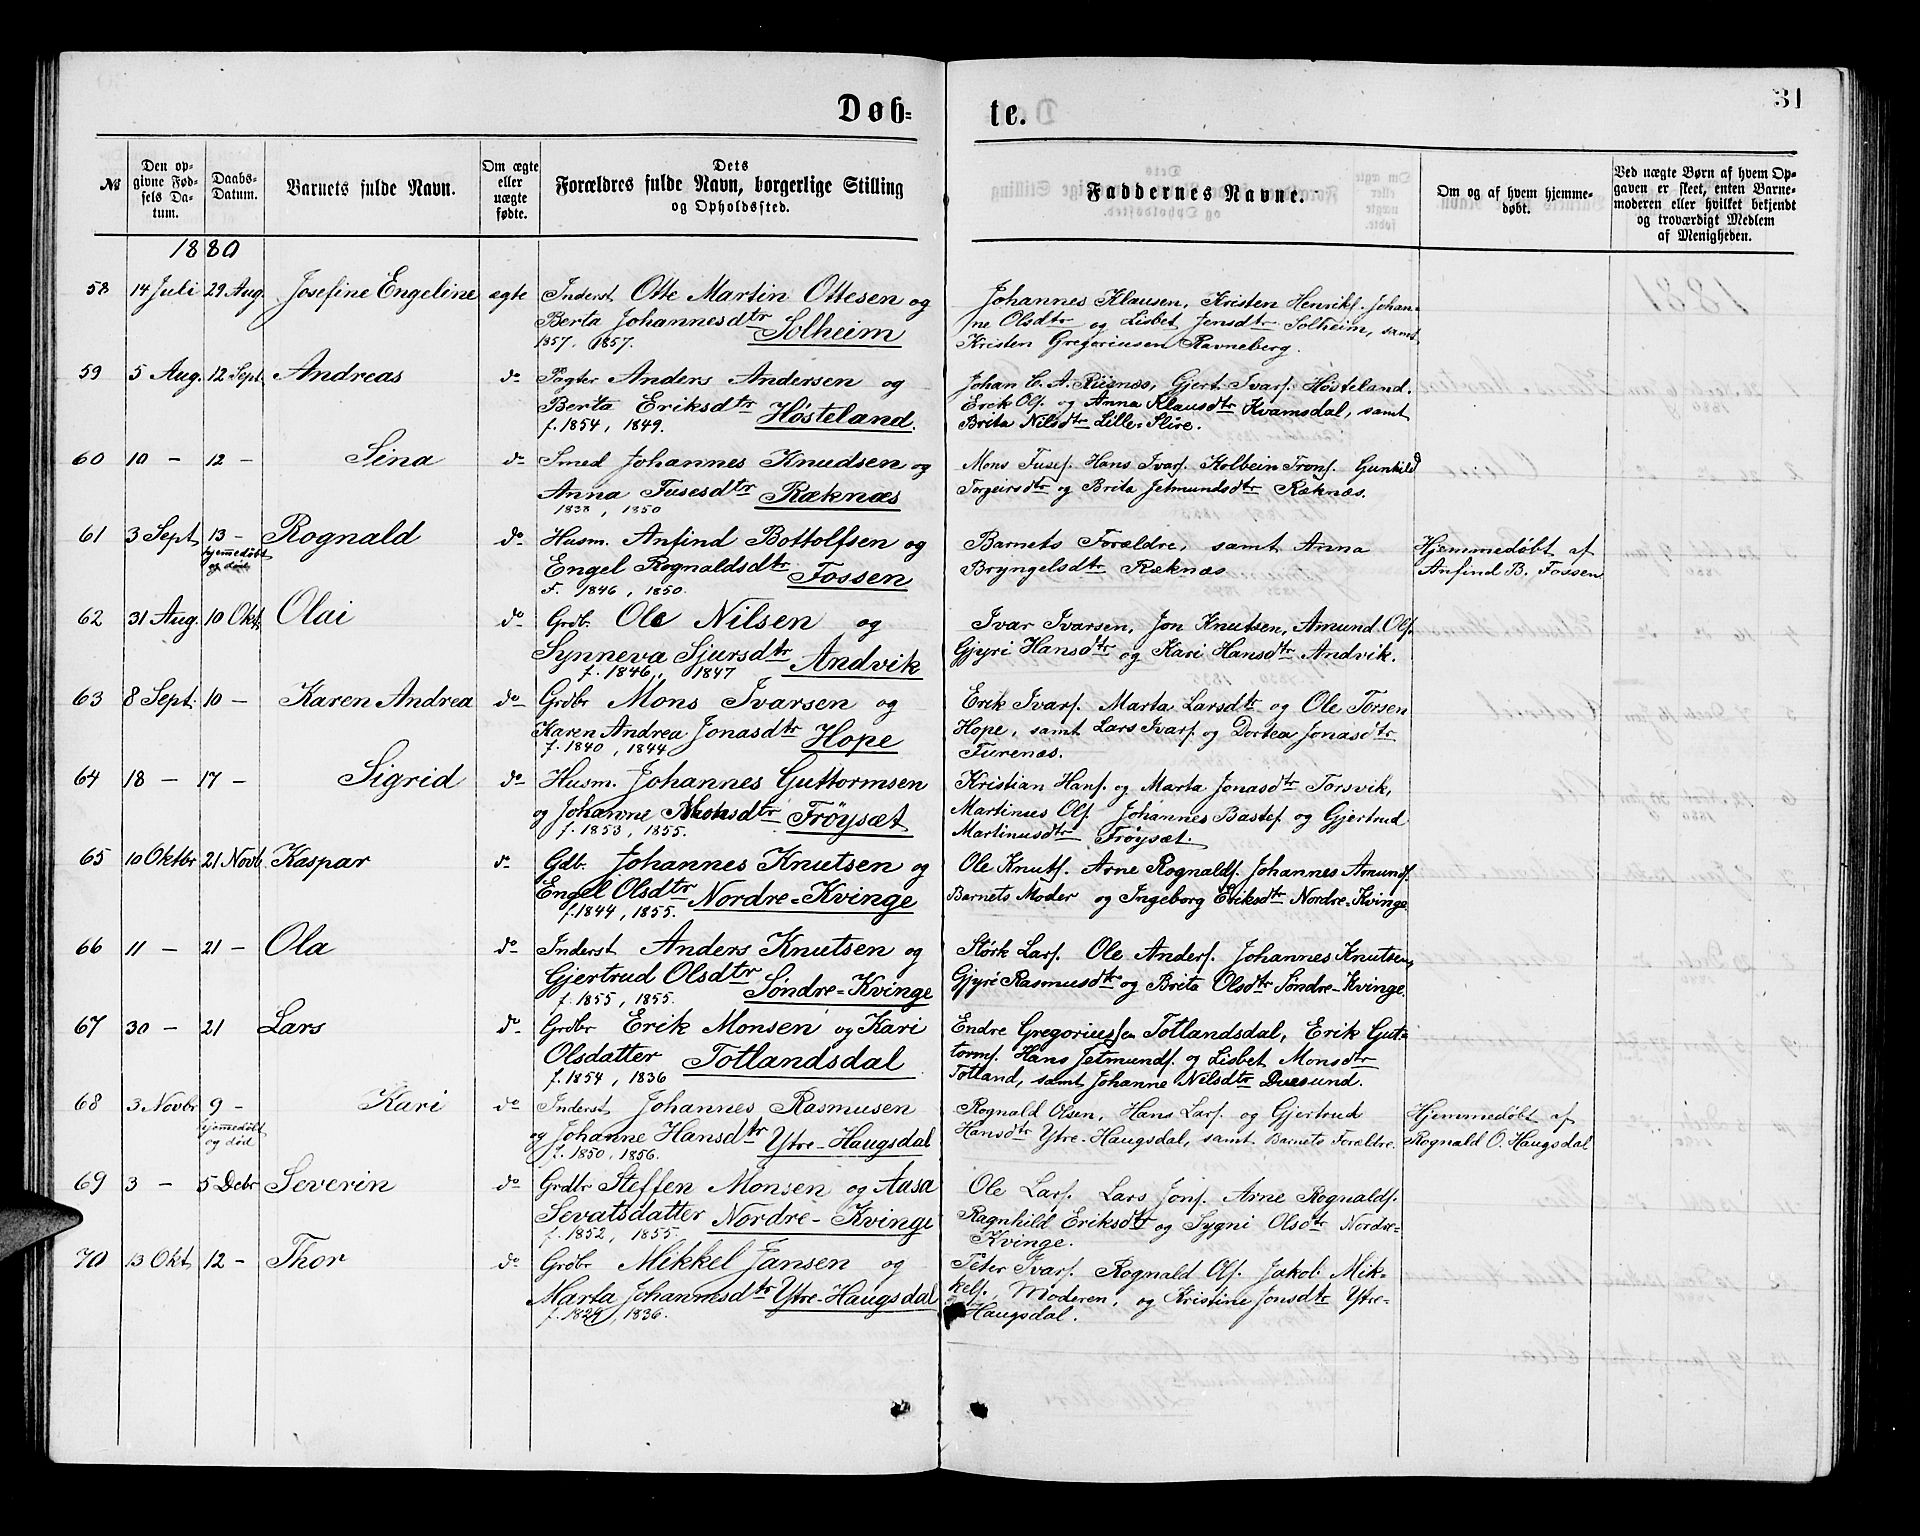 Døb-
te.
31
№
Den op-
givne Fød-
sels Da-
tum.
Daabs-
Datum.
Barnets fulde Navn.
Om ægte
eller
uægte
fødte.
Dets
Forældres fulde Navn, borgerlige Stilling
og Opholdssted.
Faddernes Navne.
Om og af hvem hjemme-
døbt.
Ved uægte Børn af hvem Op-
gaven er skeet, enten Barne-
moderen eller hvilket bekjendt
og troværdigt Medlem
af Menigheden.
1880
58 14 Juli 29 Aug. Josefine Engeline ægte Inderst Otte Martin Ottesen og
Berta Johannesdtr Solheim
1857, 1857.
Johannes Klausen, Kristen Henriks. Johan-
ne Olsdtr og Lisbet Jensdtr Solheim, samt
Kristen Gregoriusen Ravneberg.
59 5 Aug. 12 Sept. Andreas do Pagter Anders Andersen og
Berta Eriksdtr Høsteland.
f. 1854, 1849.
Johan C. A. Riisnæs, Gjert Ivars. Høsteland.
Erik Ols. og Anna Klausdtr Kvamsdal, samt
Brita Nilsdtr Lille-Slire.
60 10 - 12 - Sina do Smed Johannes Knudsen og
Anna Tusesdtr Ræknæs
1838, 1850
Mons Tuses. Hans Ivars. Kolbein Trons. Gunhild
Torgeirsdtr og Brita Jetmundsdtr Ræknæs.
61 3 Sept 13 - Rognald do Husm. Anfind Bottolfsen og
hjemmedøbt
og død
Engel Rognaldsdtr Fossen
F. 1846, 1850.
Barnets Forældre, samt Anna
Bryngelsdtr Ræknæs
Hjemmedøbt af
Anfind B. Fossen
62 31 Aug. 10 Okt. Olai do Grdb. Ole Nilsen og
Synneva Sjursdtr Andvik
f. 1846, 1847
Ivar Ivarsen, Jon Knutsen, Amund Ols.
Gjyri Hansdtr og Kari Hansdtr Andvik.
63 8 Sept. 10 - Karen Andrea do Grdbr Mons Ivarsen og
Karen Andrea Jonasdtr Hope
f. 1840, 1844
Erik Ivars. Marta Larsdtr og Ole Torsen
Hope, samt Lars Ivars. og Dortea Jonasdtr
Furenæs.
64 18 - 17 - Sigrid do Husm. Johannes Guttormsen
og Johanne Monsdtr Frøysæt
f. 1853, 1855.
Kristian Hans. og Marta Jonasdtr Torsvik,
Martinus Ols. Johannes Bastes. og Gjertrud
Martinusdtr Frøysæt.
65 10 Oktbr 21 Novb. Kaspar do Gdb. Johannes Knutsen og
Engel Olsdtr Nordre-Kvinge
f. 1844, 1855.
Ole Knuts. Arne Rognalds. Johannes Amunds.
Barnets Moder og Ingeborg Eriksdtr Nordre-Kvinge.
66 11 - 21 - Ola do Inderst Anders Knutsen og
Gjertrud Olsdtr Søndre-Kvinge
f. 1855, 1855.
Størk Lars. Ole Anders. Johannes Knutsen,
Gjyri Rasmusdtr og Brita Olsdtr Søndre-Kvinge.
67 30 - 21 Lars do Grdbr Erik Monsen og Kari
Olsdatter Totlandsdal
f. 1854, 1836
Endre Gregoriussen Totlandsdal, Erik Gut-
torms. Hans Jetmunds. og Lisbet Monsdtr
Totland, samt Johanne Nilsdtr Duesund.
68 3 Novbr 9 - Kari do Inderst Johannes Rasmusen
hjemmedøbt
og død
og Johanne Hansdtr Ytre-Haugsdal
f. 1850, 1856.
Rognald Olsen, Hans Lars. og Gjertrud
Hansdtr Ytre-Haugsdal, samt Barnets Forældre.
Hjemmedøbt af
Rognald O. Haugsdal
69 3 - 5 Debr Severin do Grdbr Steffen Monsen og Aasa
Sevatsdatter Nordre-Kvinge
f. 1852, 1855.
Ole Lars. Lars Jons. Arne Rognalds.
Ragnhild Eriksdtr og Sygni Olsdtr Nordre-
Kvinge.
70 13 Okt 12 - Thor do Grdbr Mikkel Jansen og
Marta Johannesdtr Ytre-Haugsdal
f. 1829, 1836.
Peter Ivars. Rognald Ols. Jakob Mik-
kels. Moderen, og Kristine Jonsdtr Ytre-
Haugsdal.